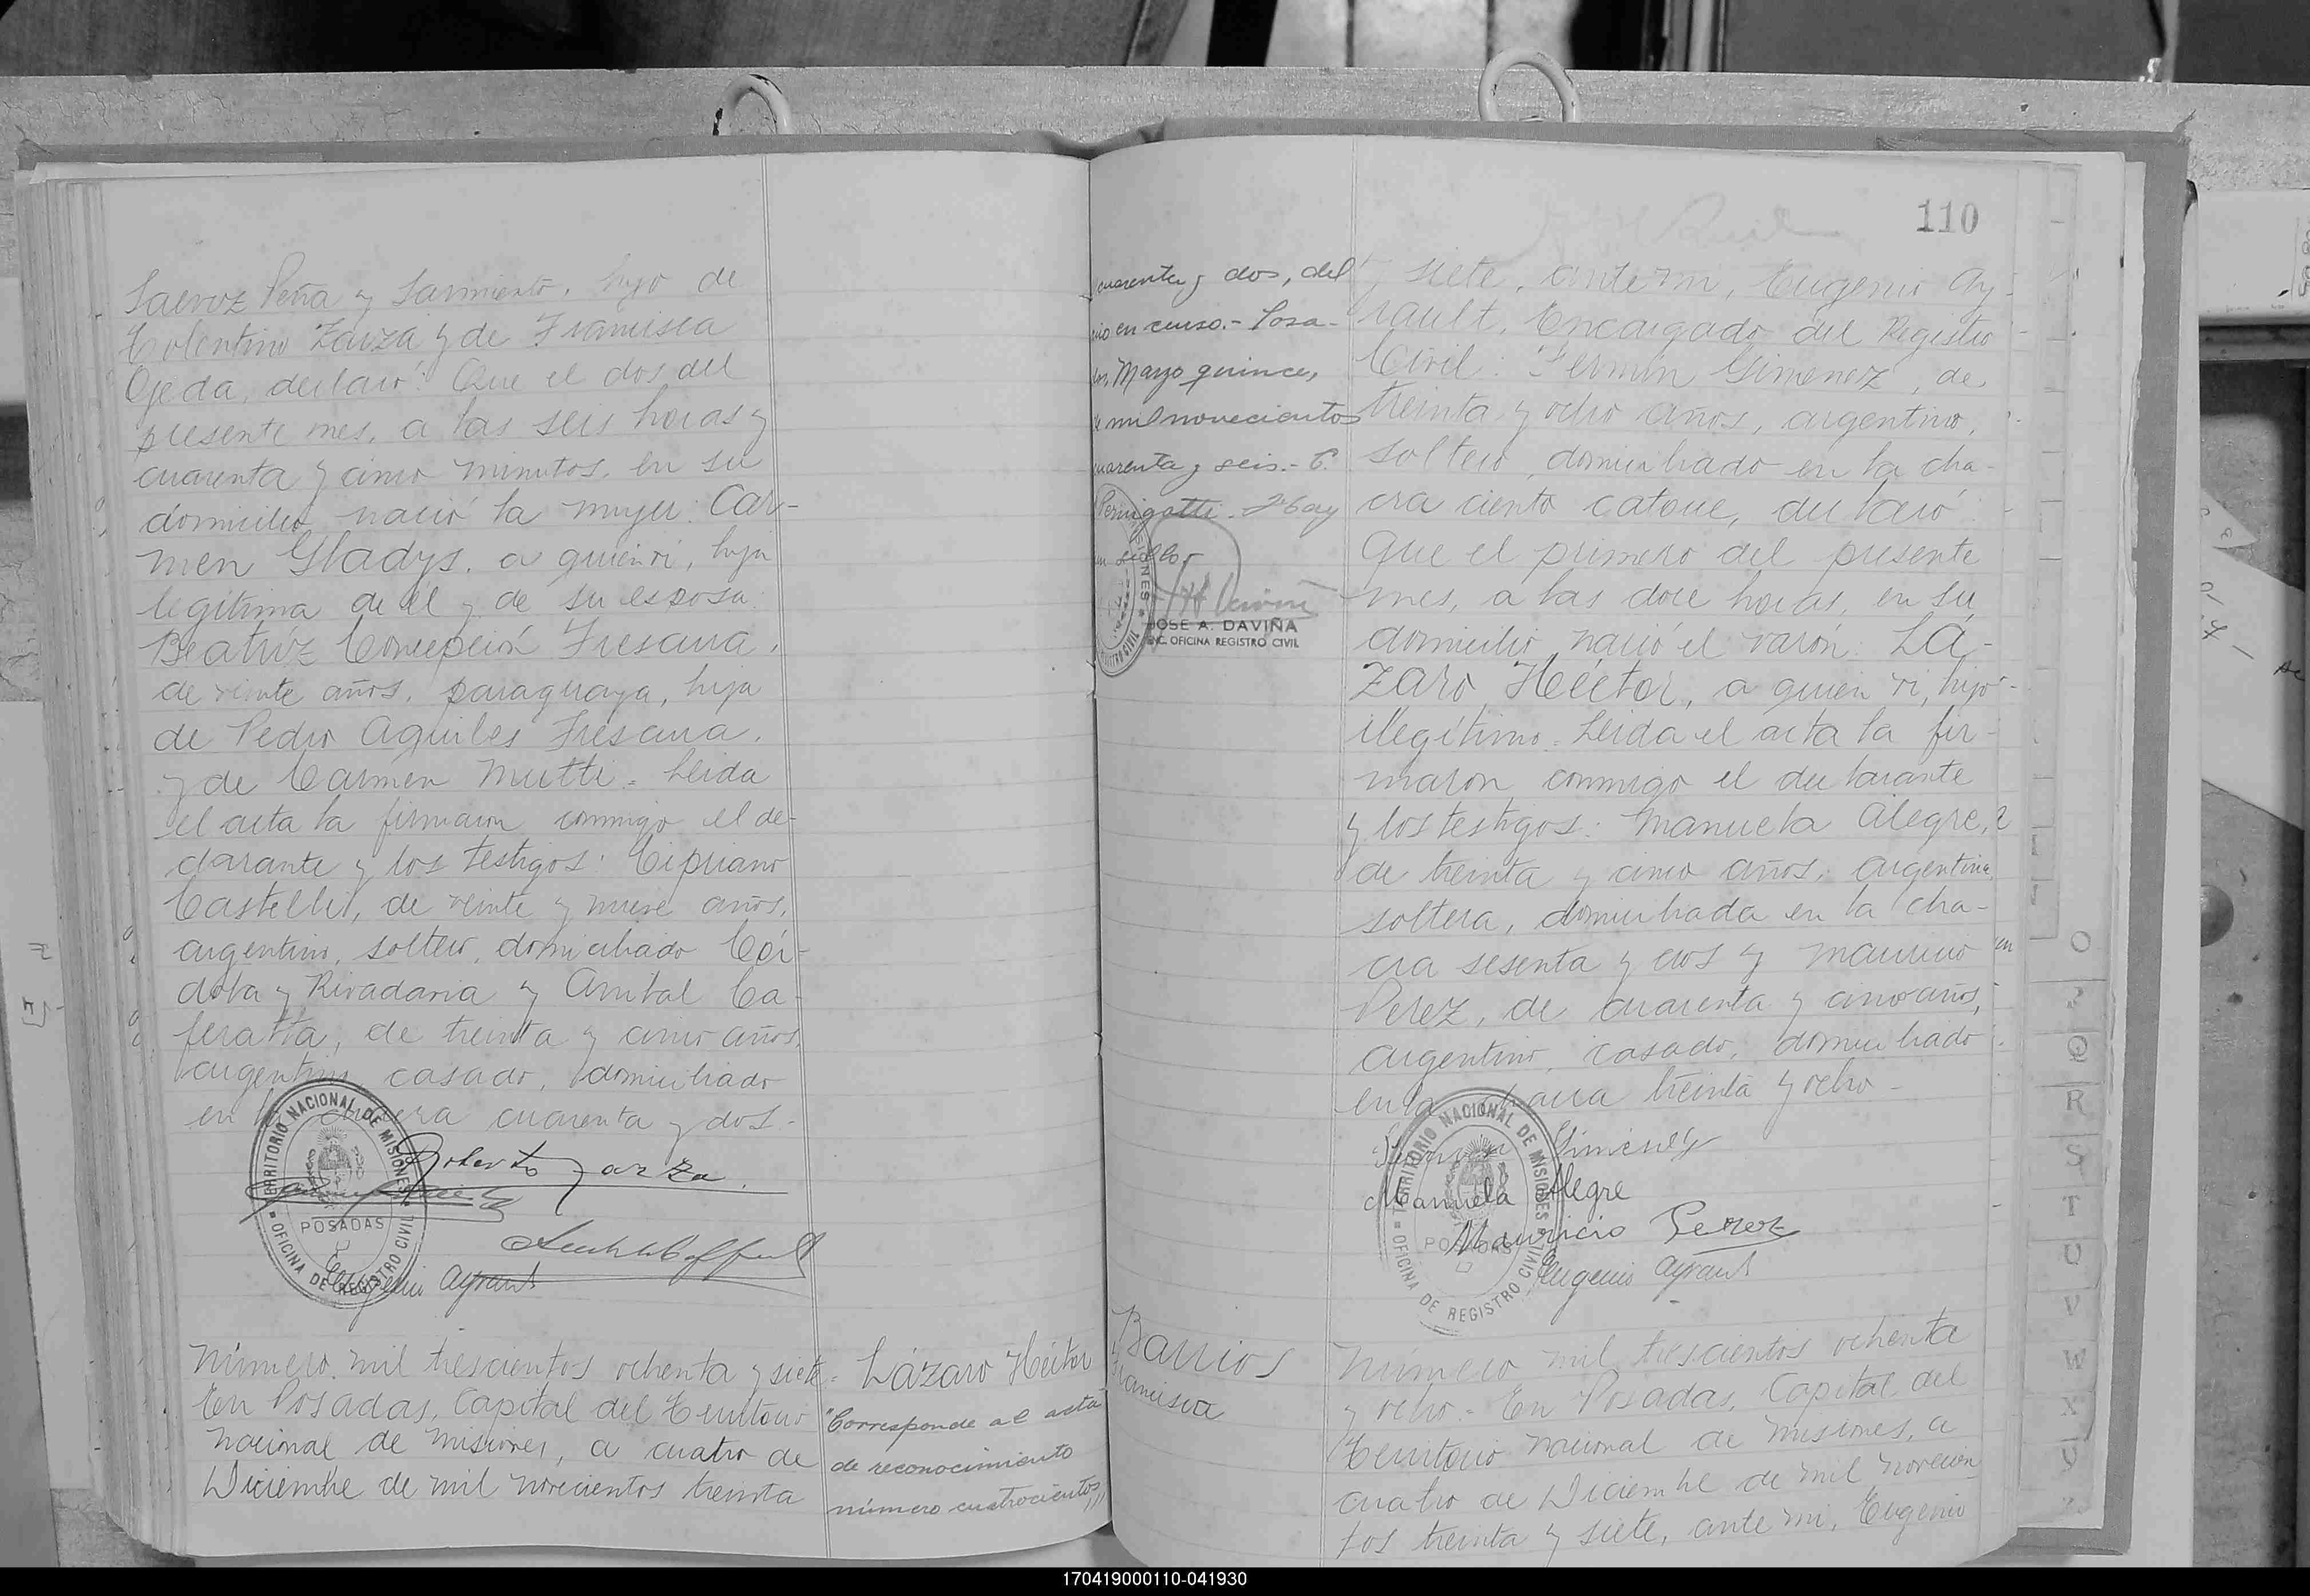 Saenz Peña y Sarmiento, hijo de
Tolentino Zarza y de Francisca
Ojeda, declaró: Que el dos del
presente mes, a las seis horas y
cuarenta y cinco minutos, en su
domicilio nació la mujer: Car-
men Gladys, a quien ví, hija
legítima de él y de su esposa:
Beatríz Concepción Fresana,
de veinte años, paraguaya, hija
de Pedro Aquiles Fresana,
y de Carmen Mutti. = Leida
el acta la firmaron conmigo el de-
clarante y los testigos: Cipriano
Castelli, de veinte y nueve años,
argentino, soltero, domiciliado Cór-
doba y Rivadavia y Anibal Ca-
feratta, de treinta y cinco años,
argentino, casado, domiciliado
en la chacra cuarenta y dos.-
Roberto Zarza.
Eugenio Ayrault
TERRITORIO NACIONAL DE MISIONES
POSADAS
OFICINA DE REGISTRO CIVIL
Número mil trescientos ochenta y siete.-
En Posadas, Capital del Territorio
Nacional de Misiones, a cuatro de
Diciembre de mil novecientos treinta
Lázaro Héctor
"Corresponde al acta
de reconocimiento
número cuatrocientos
110
cuarenta y dos, del
año en curso.- Posa-
das, Mayo quince,
de mil novecientos
cuarenta y seis.- C.
Pernigotti - Hay
un sello.-
JOSE A. DAVIÑA
ENC. OFICINA REGISTRO CIVIL
y siete, ante mi, Eugenio Ay-
rault, Encargado del Registro
Civil: Fermín Gimenez, de
treinta y ocho años, argentino,
soltero, domiciliado en la cha-
cra ciento catorce, declaró:
Que el primero del presente
mes, a las doce horas, en su
domicilio, nació el varón: Lá-
zaro Héctor, a quien ví, hijo
ilegítimo.= Leida el acta la fir-
maron conmigo el declarante
y los testigos: Manuela Alegre,
de treinta y cinco años, argentina,
soltera, domiciliada en la cha-
cra sesenta y dos y Mauricio
Perez, de cuarenta y cinco años,
argentino, casado, domiciliado
en la chacra treinta y ocho.-
Fermin Gimenez
Manuela Alegre
Mauricio Perez
Eugenio Ayrault
TERRITORIO NACIONAL DE MISIONES
POSADAS
OFICINA DE REGISTRO CIVIL
Barrios
Francisca
Número mil trescientos ochenta
y ocho.- En Posadas, Capital del
Territorio Nacional de Misiones, a
cuatro de Diciembre de mil novecien
tos treinta y siete, ante mi, Eugenio
O
P
Q
R
S
T
U
V
W
X
Y
Z
170419000110-041930